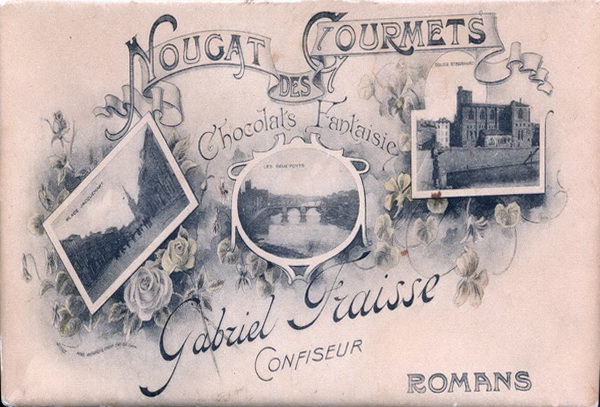 NOUGAT DES GOURMETS
Chocolats Fantaisie
EGLISE ST BERNARD
LES DEUX PONTS
PLACE JACQUEMART
Gabriel Fraisse
CONFISEUR
ROMANS